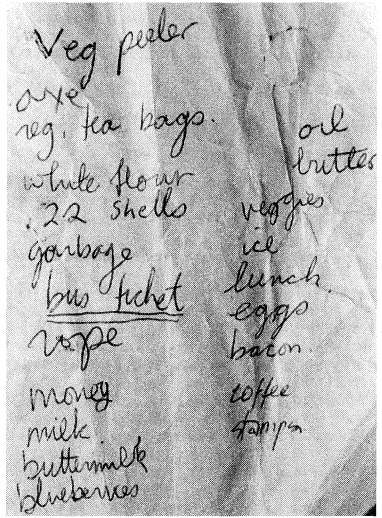 Veg peeler
axe
reg. tea bags.
white flour
.22 shells
garbage
bus ticket
rope
money
milk
buttermilk
blueberries
oil
butter
veggies
ice
lunch
eggs
bacon
coffee
stamps